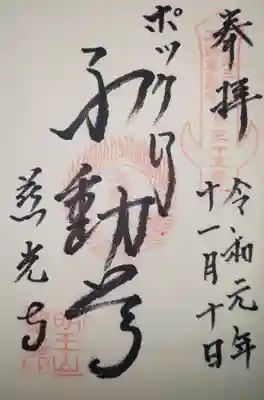 奉拝
令和元年
十一月十日
ポックリ
不動尊
慈光寺